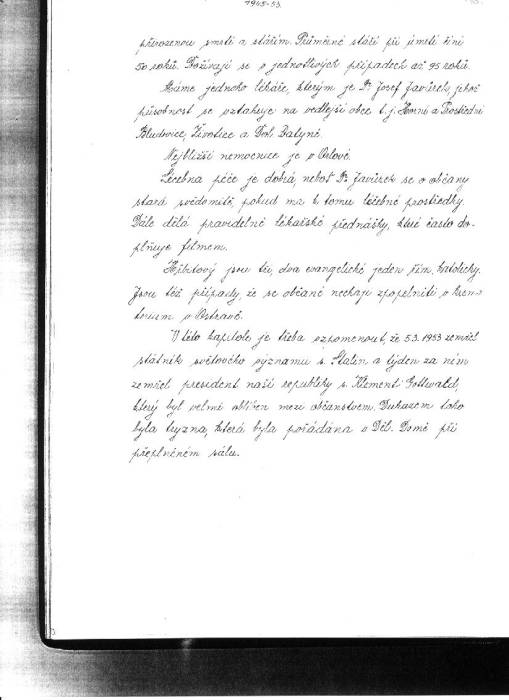 1945-53.
přirozenou smrtí a stářím. Průměrné stáří při úmrtí činí
50 roků. Dožívají se v jednotlivých případech až 95 roků.
Máme jednoho lékáře, kterým je Dr Josef Javůrek, jehož
působnost se vztahuje na vedlejší obce t.j. Horní a Prostřední
Bludovice, Životice a Dol. Datyně.
Nejbližší nemocnice je v Orlové.
Léčebna péče je dobrá, neboť Dr Javůrek se o občany
stará svědomitě, pokud má k tomu léčebné prostředky.
Dále dělá pravidelné lékařské přednášky, které často do-
plňuje filmem.
Hřbitovy jsou tři, dva evangelické jeden řím. katolický.
Jsou též případy, že se občané nechají zpopelniti v krem-
toriu v Ostravě.
V této kapitole je třeba vzpomenout, že 5.3. 1953 zemřel
státník světového významu s. Stalin a týden za ním
zemřel president naší republiky s. Klement Gottwald,
který byl velmi oblíben mezi občanstvem. Důkazem toho
byla tryzna, která byla pořádána v Děl. Domě při
přeplněném sálu.